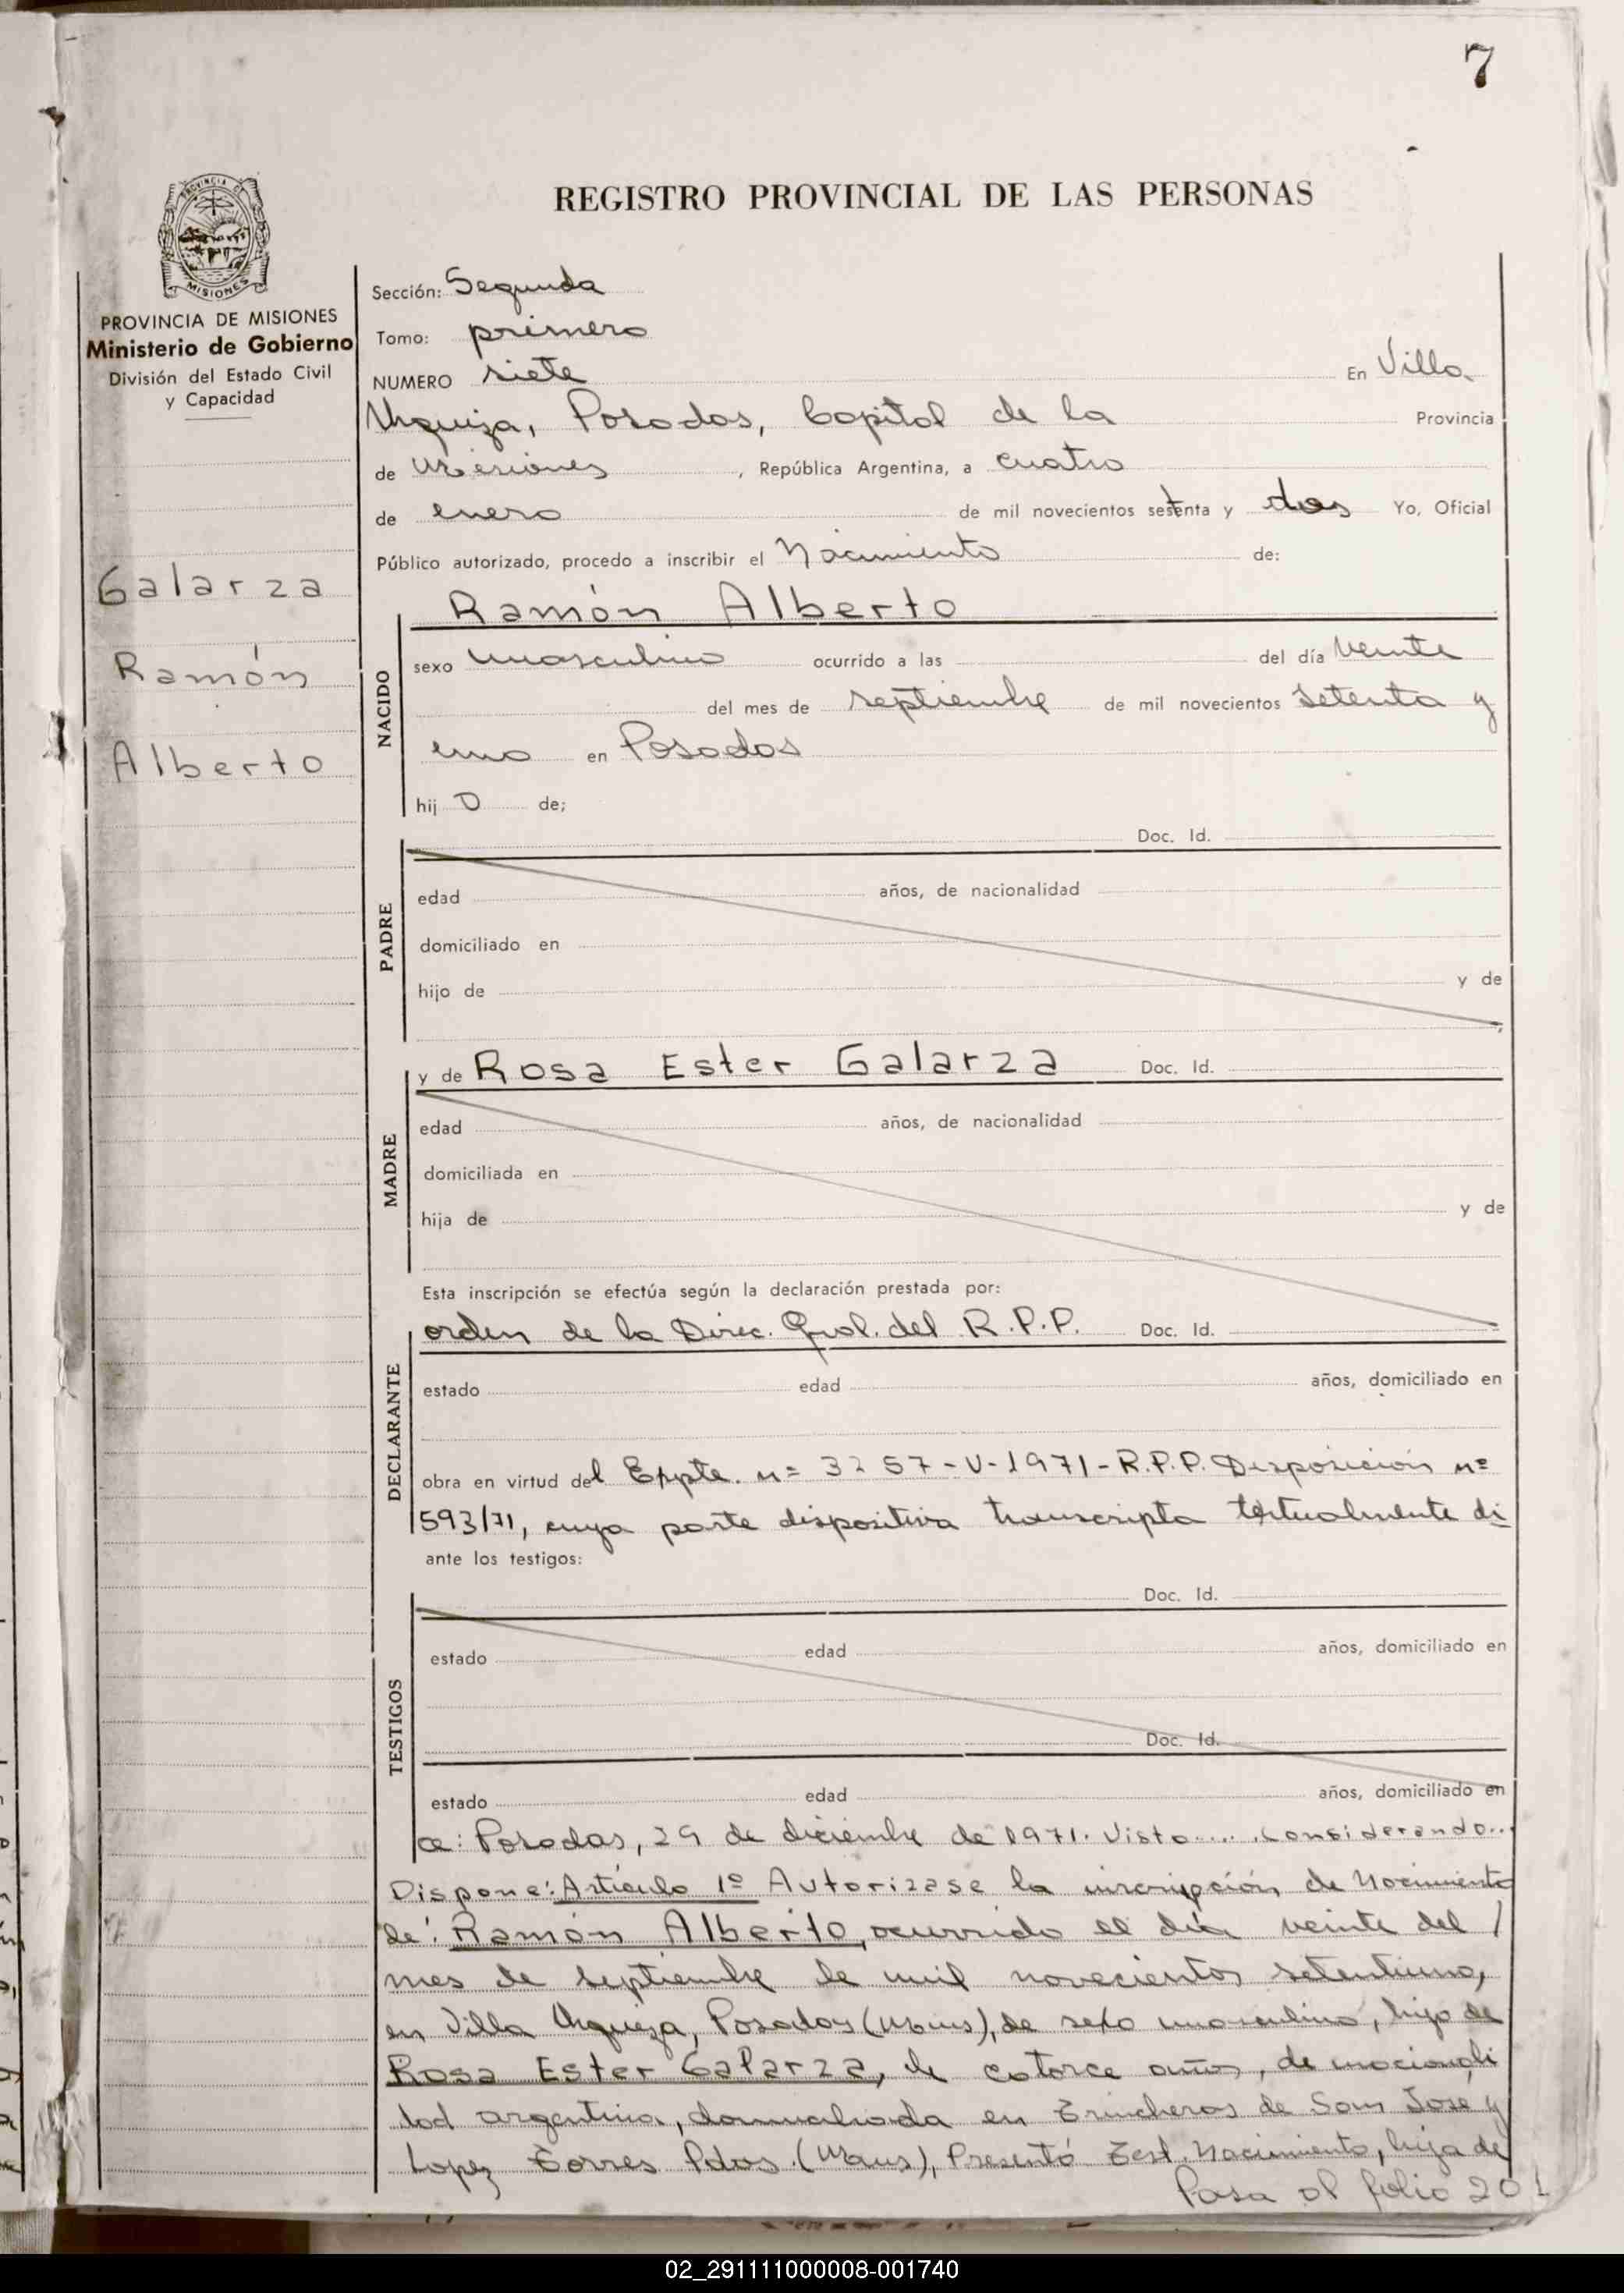 7
REGISTRO PROVINCIAL DE LAS PERSONAS
PROVINCIA DE
MISIONES
PROVINCIA DE MISIONES
Ministerio de Gobierno
División del Estado Civil
y Capacidad
Galarza
Ramón
Alberto
Sección: Segunda
Tomo: primero
NUMERO siete En Villa
Urquiza, Posadas, Capital de la Provincia
de Misiones, República Argentina, a cuatro
de enero de mil novecientos setenta y dos Yo, Oficial
Público autorizado, procedo a inscribir el Nacimiento de:
NACIDO
Ramón Alberto
sexo masculino ocurrido a las del día veinte
del mes de septiembre de mil novecientos setenta y
uno en Posadas
hij o de;
PADRE
Doc. Id.
edad años, de nacionalidad
domiciliado en
hijo de y de
MADRE
y de Rosa Ester Galarza Doc. Id.
edad años, de nacionalidad
domiciliada en
hija de y de
Esta inscripción se efectúa según la declaración prestada por:
DECLARANTE
orden de la Direc. Gral. del R.P.P. Doc. Id.
estado edad años, domiciliado en
obra en virtud del Expte. nº 3257-V-1971-R.P.P. Disposición nº
593/71, cuya parte dispositiva transcripta textualmente di
ante los testigos:
TESTIGOS
Doc. Id.
estado edad años, domiciliado en
Doc. Id.
estado edad años, domiciliado en
ce: Posadas, 29 de diciembre de 1971. Visto..... Considerando...
Dispone: Artículo 1º Autorizase la inscripción de Nacimiento
de: Ramón Alberto, ocurrido el día veinte del /
mes de septiembre de mil novecientos setentiuno,
en Villa Urquiza, Posadas (Mnes), de sexo masculino, hijo de
Rosa Ester Galarza, de catorce años, de nacionali
dad argentina, domiciliada en Trincheras de San José y
Lopez Torres Pdas. (Mnes), Presentó Test. Nacimiento, hija de
Pasa al folio 201
02_291111000008-001740